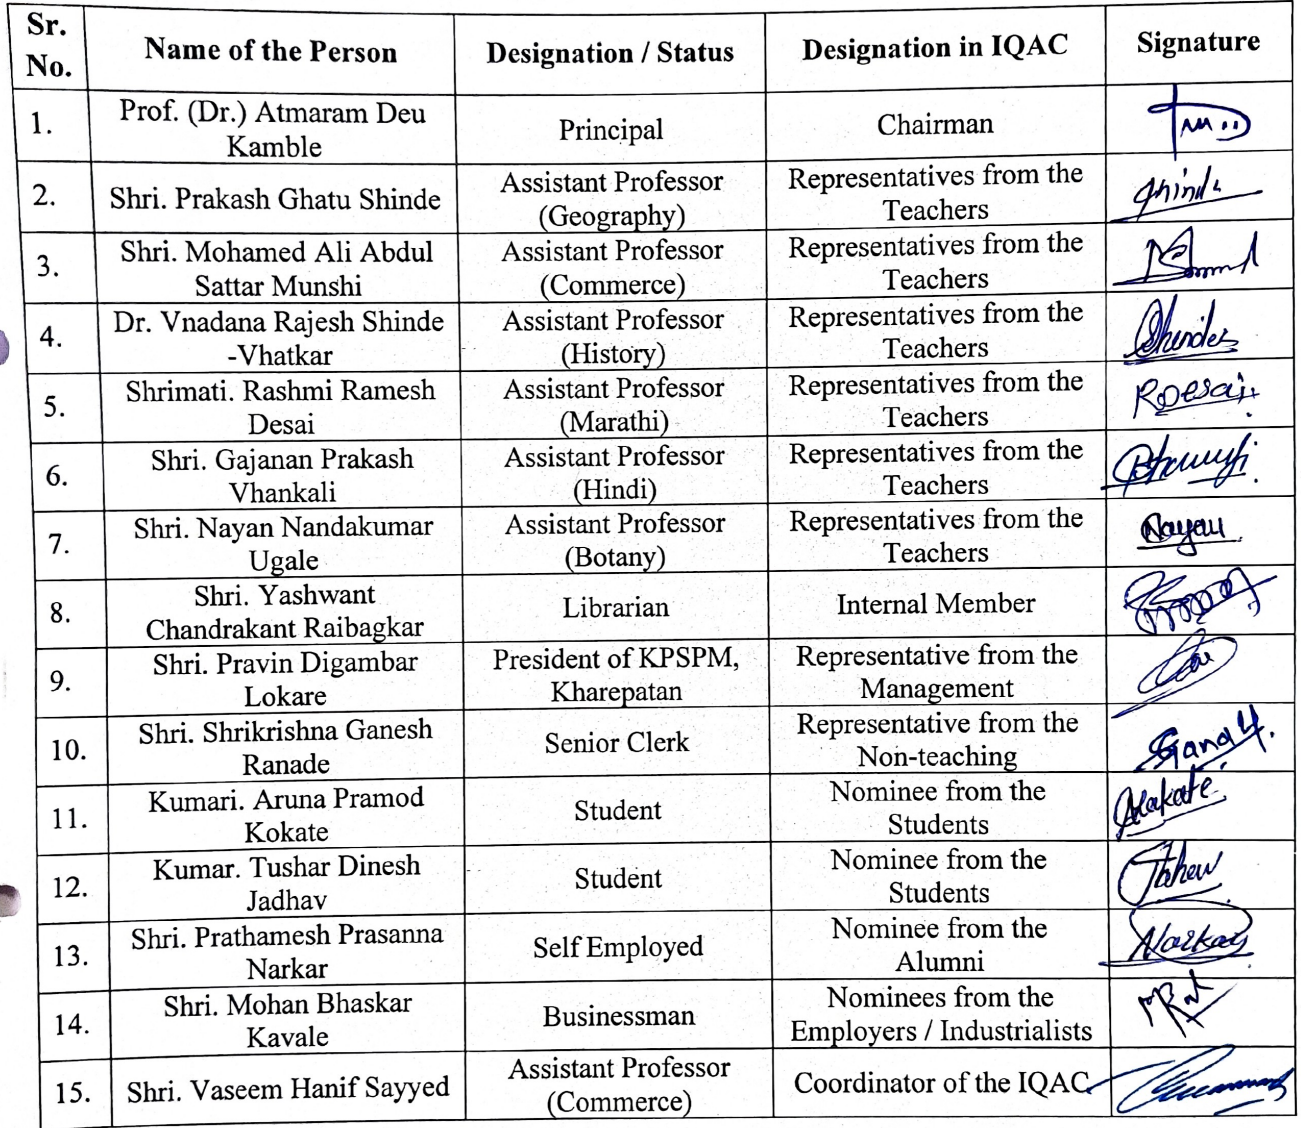 Sr. No. Name of the Person Designation / Status Designation in IQAC Signature
1. Prof. (Dr.) Atmaram Deu Kamble Principal Chairman
2. Shri. Prakash Ghatu Shinde Assistant Professor (Geography) Representatives from the Teachers Shinde
3. Shri. Mohamed Ali Abdul Sattar Munshi Assistant Professor (Commerce) Representatives from the Teachers
4. Dr. Vnadana Rajesh Shinde -Vhatkar Assistant Professor (History) Representatives from the Teachers
5. Shrimati. Rashmi Ramesh Desai Assistant Professor (Marathi) Representatives from the Teachers RDesai
6. Shri. Gajanan Prakash Vhankali Assistant Professor (Hindi) Representatives from the Teachers
7. Shri. Nayan Nandakumar Ugale Assistant Professor (Botany) Representatives from the Teachers Nayan
8. Shri. Yashwant Chandrakant Raibagkar Librarian Internal Member
9. Shri. Pravin Digambar Lokare President of KPSPM, Kharepatan Representative from the Management
10. Shri. Shrikrishna Ganesh Ranade Senior Clerk Representative from the Non-teaching
11. Kumari. Aruna Pramod Kokate Student Nominee from the Students
12. Kumar. Tushar Dinesh Jadhav Student Nominee from the Students
13. Shri. Prathamesh Prasanna Narkar Self Employed Nominee from the Alumni Narkar
14. Shri. Mohan Bhaskar Kavale Businessman Nominees from the Employers / Industrialists
15. Shri. Vaseem Hanif Sayyed Assistant Professor (Commerce) Coordinator of the IQAC